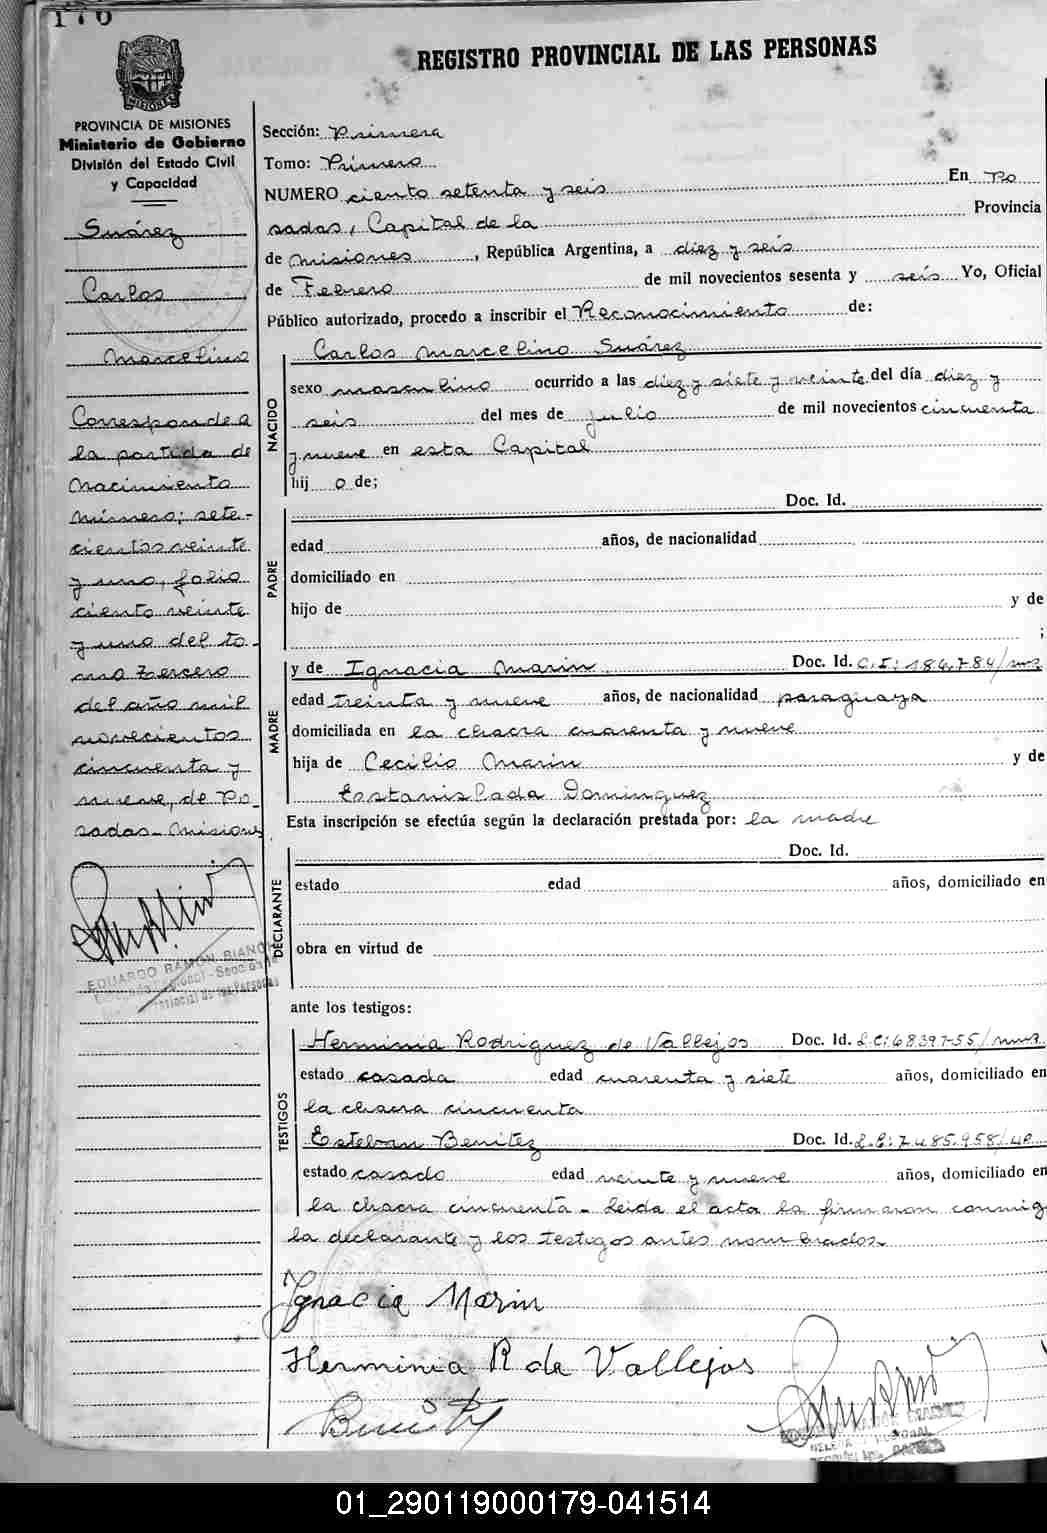 176
REGISTRO PROVINCIAL DE LAS PERSONAS
PROVINCIA DE MISIONES
Ministerio de Gobierno
División del Estado Civil
y Capacidad
Suárez
Carlos
Marcelino
Corresponde a
la partida de
nacimiento
número; sete-
cientos veinte
y uno, folio
ciento veinte
y uno del to-
mo tercero
del año mil
novecientos
cincuenta y
nueve, de Po-
sadas-Misiones
EDUARDO RAMÓN BIANCHI
Sección: Primera
Tomo: Primero
NUMERO ciento setenta y seis En Po
sadas, Capital de la Provincia
de Misiones, República Argentina, a diez y seis
de Febrero de mil novecientos sesenta y seis Yo, Oficial
Público autorizado, procedo a inscribir el Reconocimiento de:
NACIDO
Carlos Marcelino Suárez
sexo masculino ocurrido a las diez y siete y veinte del día diez y
seis del mes de julio de mil novecientos cincuenta
y nueve en esta Capital
hij o de;
PADRE
Doc. Id.
edad años, de nacionalidad
domiciliado en
hijo de y de
;
MADRE
y de Ignacia Marin Doc. Id. C.I: 186.784/mnes
edad treinta y nueve años, de nacionalidad paraguaya
domiciliada en la chacra cuarenta y nueve
hija de Cecilio Marin y de
Estanislada Dominguez
Esta inscripción se efectúa según la declaración prestada por: la madre
DECLARANTE
Doc. Id.
estado edad años, domiciliado en
obra en virtud de
ante los testigos:
TESTIGOS
Herminia Rodriguez de Vallejos Doc. Id. L.C: 6839755/mnes
estado casada edad cuarenta y siete años, domiciliado en
la chacra cincuenta
Esteban Benitez Doc. Id. L.E: 7.485.958/
estado casado edad veinte y nueve años, domiciliado en
la chacra cincuenta - Leida el acta la firmaron conmig
la declarante y los testigos antes nombrados
Ignacia Marin
Herminia R de Vallejos
Benitez
01_290119000179-041514